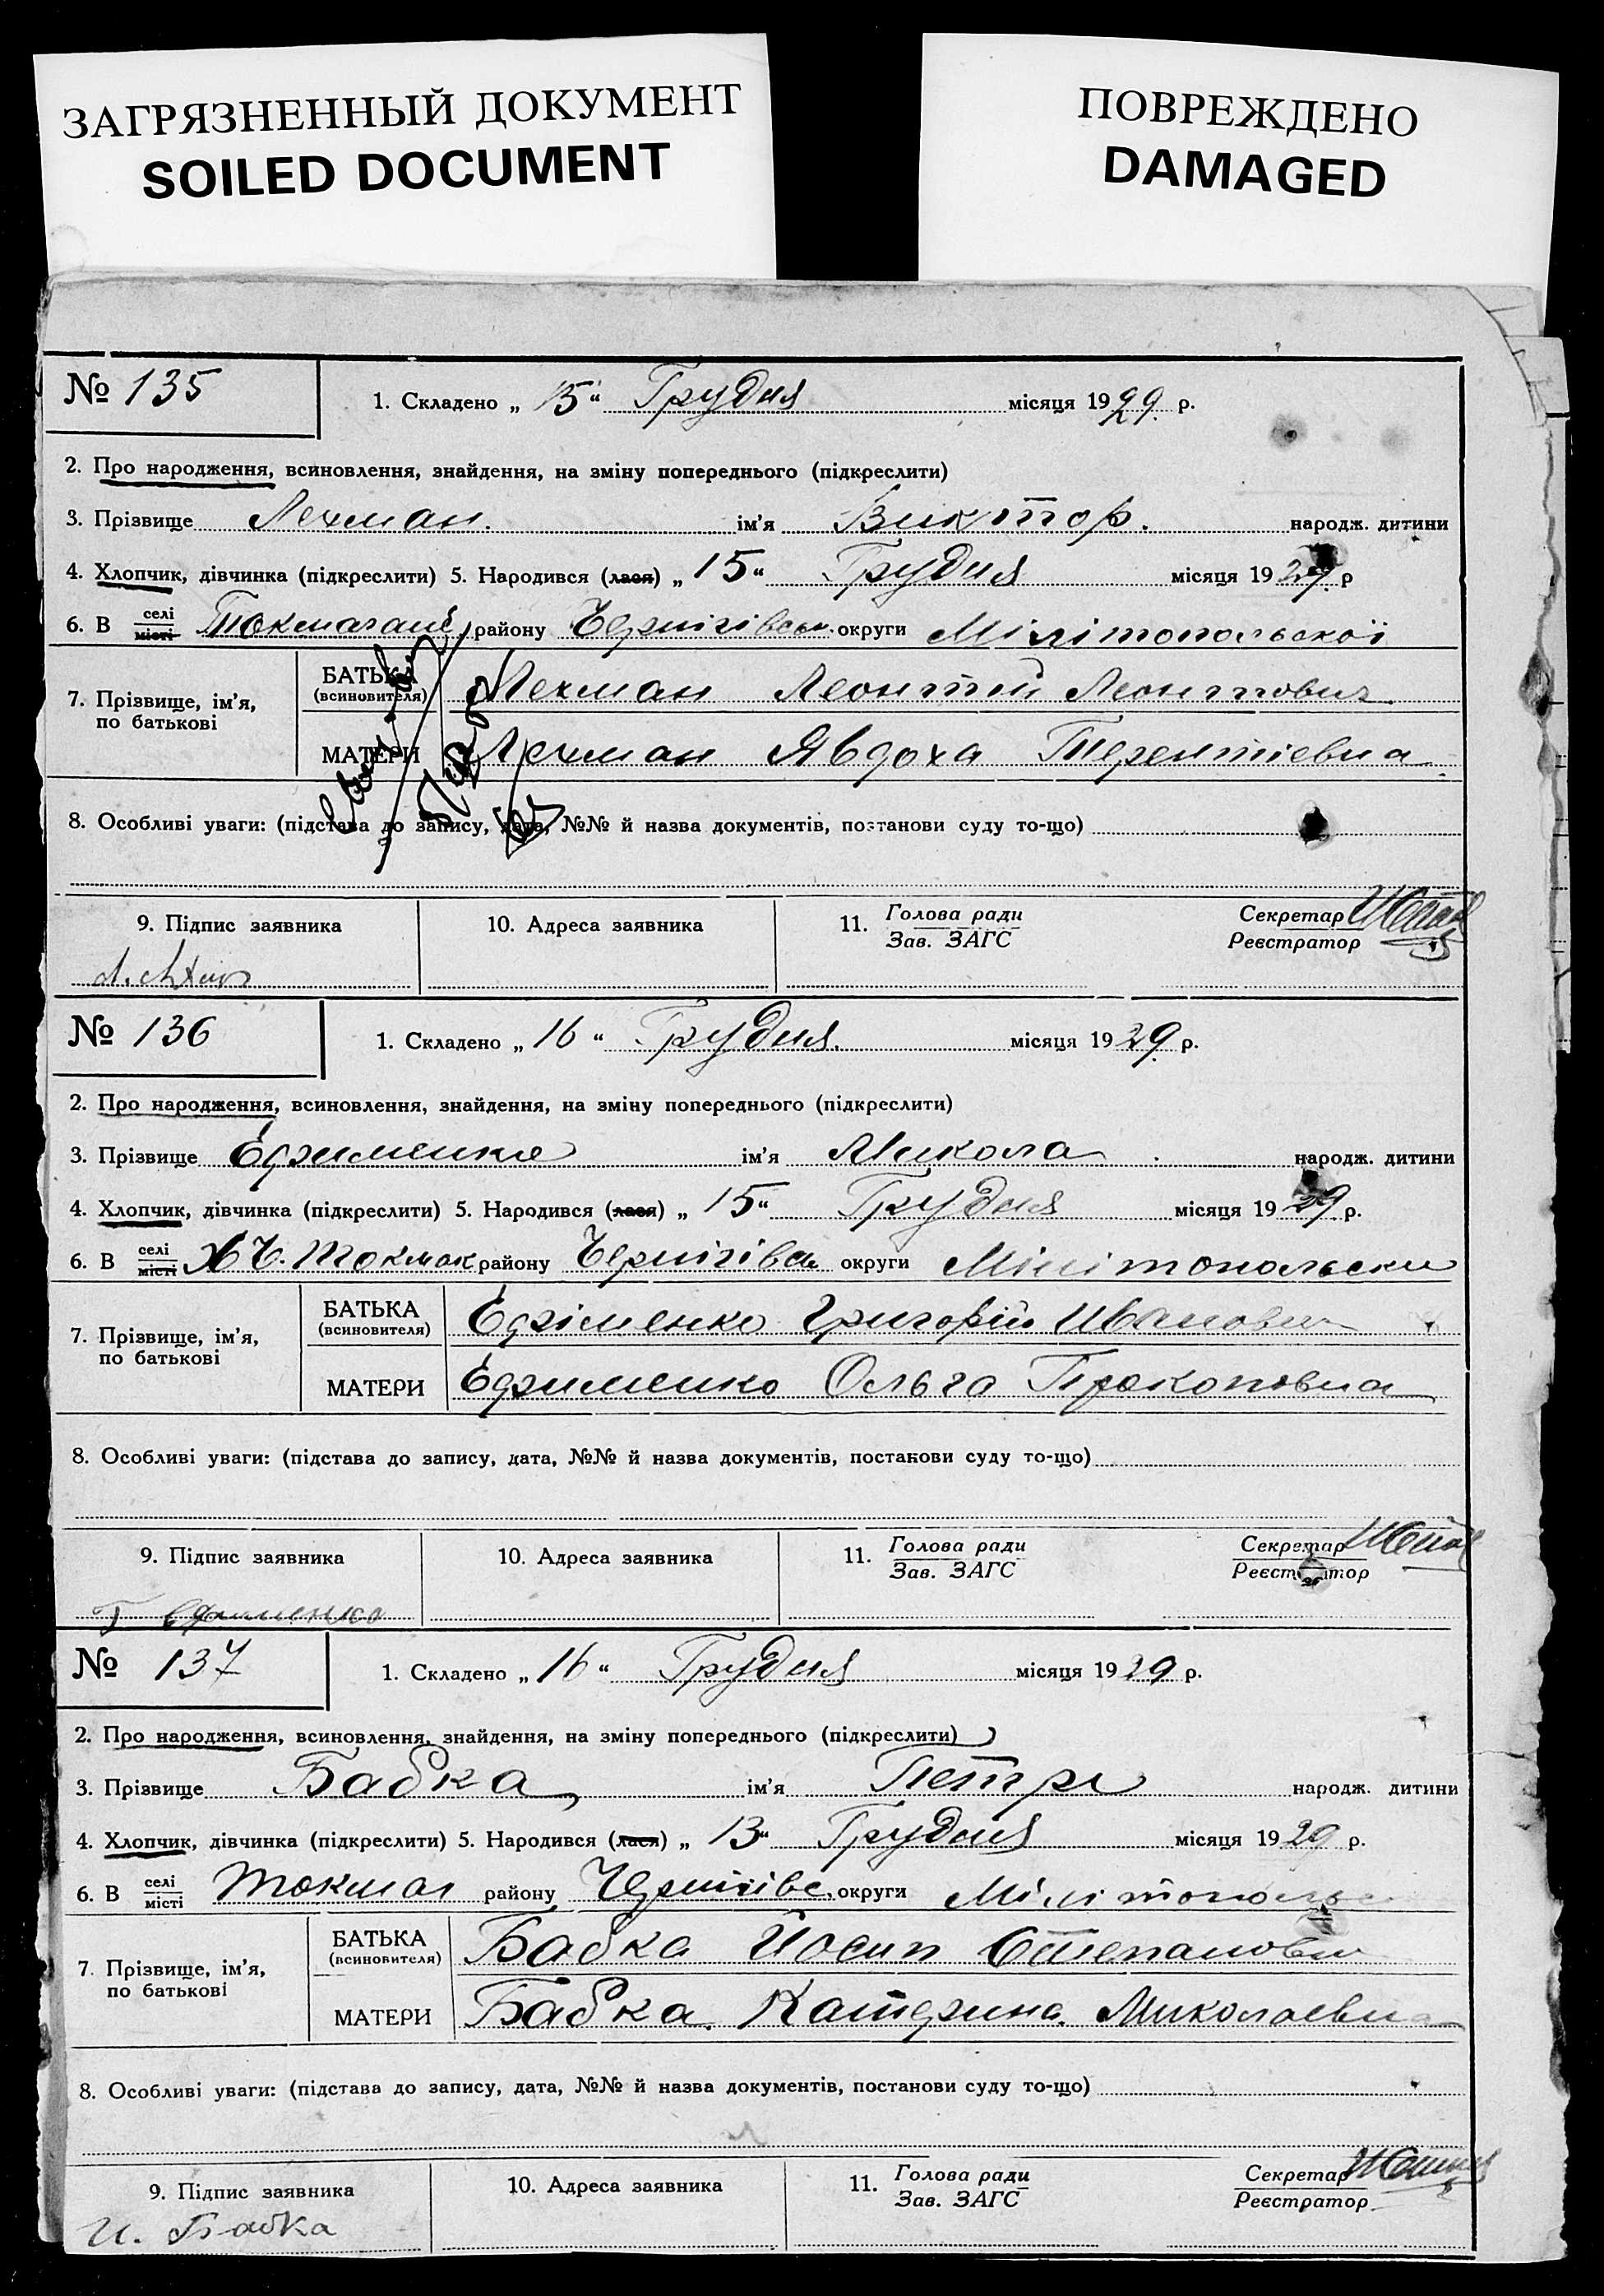 ЗАГРЯЗНЕННЫЙ ДОКУМЕНТ
SOILED DOCUMENT
ПОВРЕЖДЕНО
DAMAGED
№ 135
1. Складено „ 15 “ Грудня місяця 1929. р.
2. Про народження, всиновлення, знайдення, на зміну попереднього (підкреслити)
3. Прізвище Лехман. ім'я Виктор. народж. дитини
4. Хлопчик, дівчинка (підкреслити) 5. Народився (лася) „ 15 “ Грудня місяця 1929. р
6. В селі/місті району Чернігівськ. округи Мілітопольскої
7. Прізвище, ім'я, по батькові
БАТЬКА (всиновителя) Лехман Леонтій Леонтович
МАТЕРИ Лехман Явдоха Терентіевна
8. Особливі уваги: (підстава до запису, дата, №№ й назва документів, постанови суду то-що)
9. Підпис заявника
10. Адреса заявника
11. Голова ради
Зав. ЗАГС
Секретар
Реєстратор
№ 136
1. Складено „ 16 “ Грудня. місяця 1929. р.
2. Про народження, всиновлення, знайдення, на зміну попереднього (підкреслити)
3. Прізвище Ефименко ім'я Микола народж. дитини
4. Хлопчик, дівчинка (підкреслити) 5. Народився (лася) „ 15 “ Грудня місяця 1929 р.
6. В селі/місті Токмак району Чернігівськ округи Мілітопольски
7. Прізвище, ім'я, по батькові
БАТЬКА (всиновителя) Ефіменко Григорій Иванович
МАТЕРИ Ефименко Ольга Прокоповна
8. Особливі уваги: (підстава до запису, дата, №№ й назва документів, постанови суду то-що)
9. Підпис заявника
10. Адреса заявника
11. Голова ради
Зав. ЗАГС
Секретар
Реєстратор
Г Ефименко
№ 137
1. Складено „ 16 “ Грудня місяця 1929 р.
2. Про народження, всиновлення, знайдення, на зміну попереднього (підкреслити)
3. Прізвище Бабка ім'я Петро народж. дитини
4. Хлопчик, дівчинка (підкреслити) 5. Народився (лася) „ 13 “ Грудня місяця 1929 р.
6. В селі/місті Токмак району Чернігівс. округи Мілітопольс
7. Прізвище, ім'я, по батькові
БАТЬКА (всиновителя) Бабка Йосип Степанович
МАТЕРИ Бабка. Катерина. Миколаевна
8. Особливі уваги: (підстава до запису, дата, №№ й назва документів, постанови суду то-що)
9. Підпис заявника
10. Адреса заявника
11. Голова ради
Зав. ЗАГС
Секретар
Реєстратор
И. Бабка